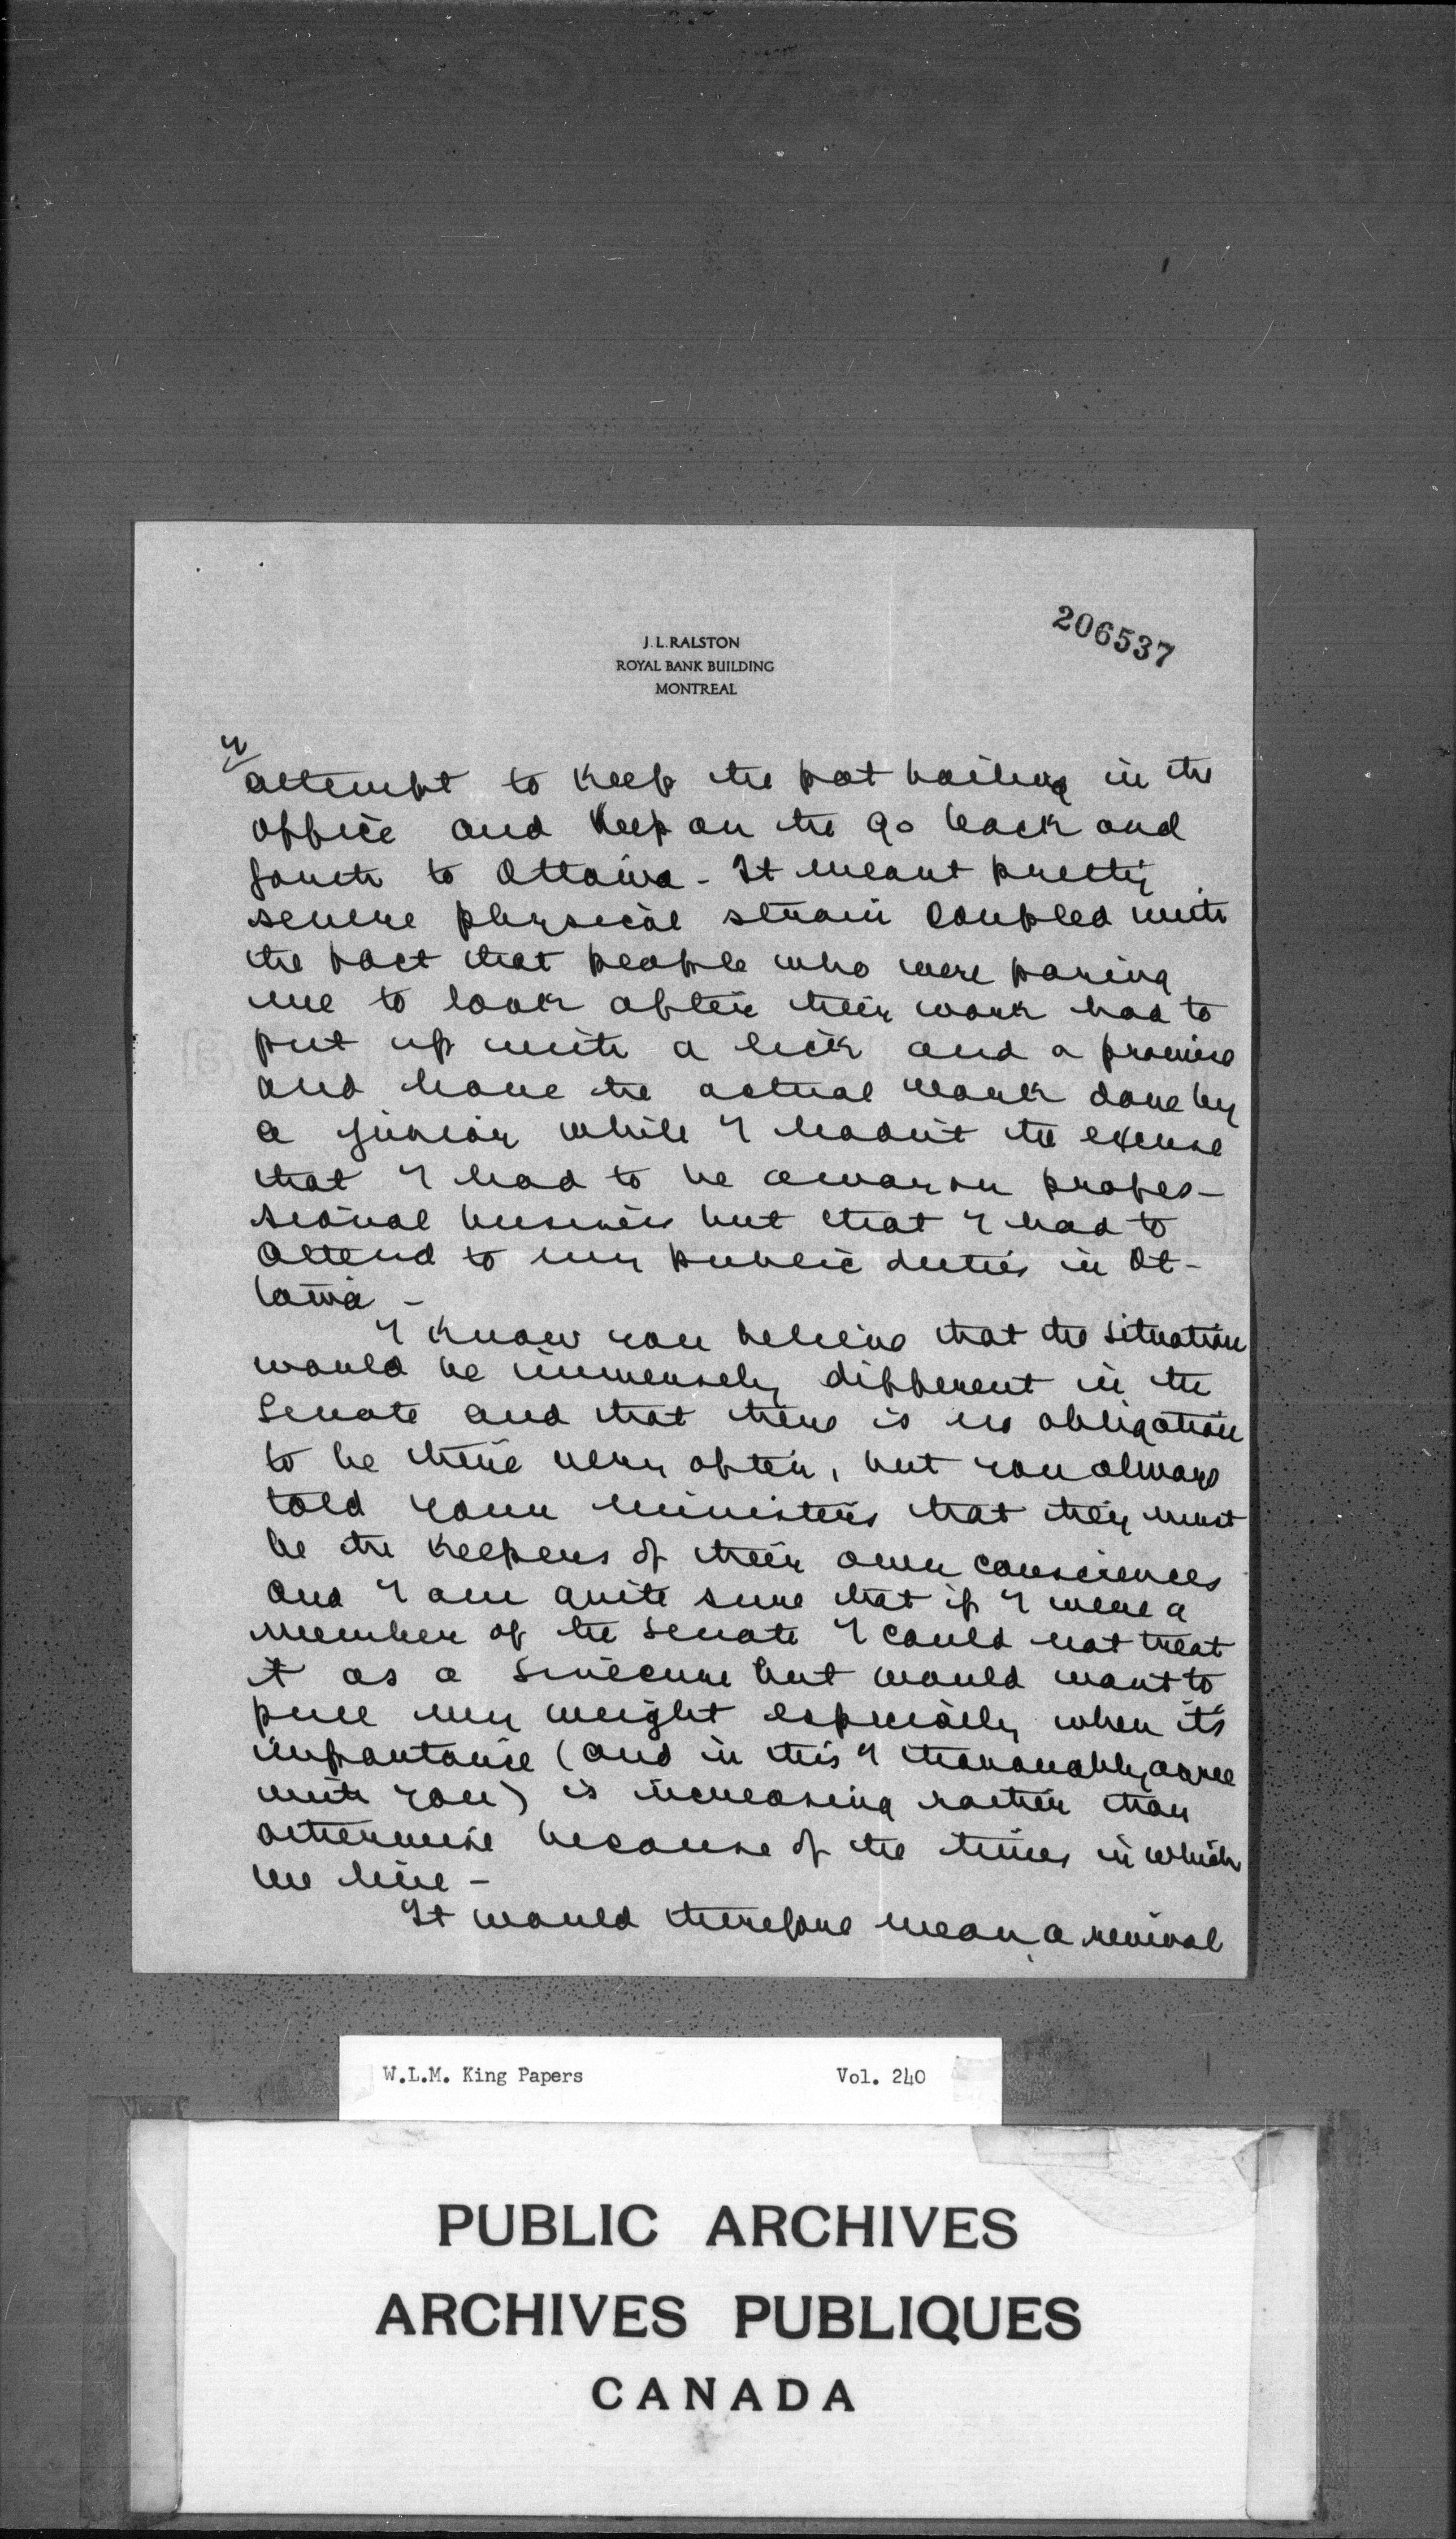 J. L. RALSTON
ROYAL BANK BUILDING
MONTREAL
206537
attempt to keep the pot boiling in the
office and keep on the go back and
forth to Ottawa - It meant pretty
severe physical strain coupled with
the fact that people who were paying
me to look after their work had to
put up with a lick and a promise
and have the actual work done by
a junior while I hadn't the excuse
that I had to be away on profes-
sional business but that I had to
attend to my public duties in Ot-
tawa -
I know you believe that the situation
would be immensely different in the
Senate and that there is no obligation
to be there very often, but you always
told your ministers that they must
be the keepers of their own consciences
and I am quite sure that if I were a
member of the Senate I could not treat
it as a sinecure but would want to
pull my weight especially when it's
importance (and in this I thoroughly agree
with you) is increasing rather than
otherwise because of the times in which
we live -
It would therefore mean a revival
W.L.M. King Papers Vol. 240
PUBLIC ARCHIVES
ARCHIVES PUBLIQUES
CANADA